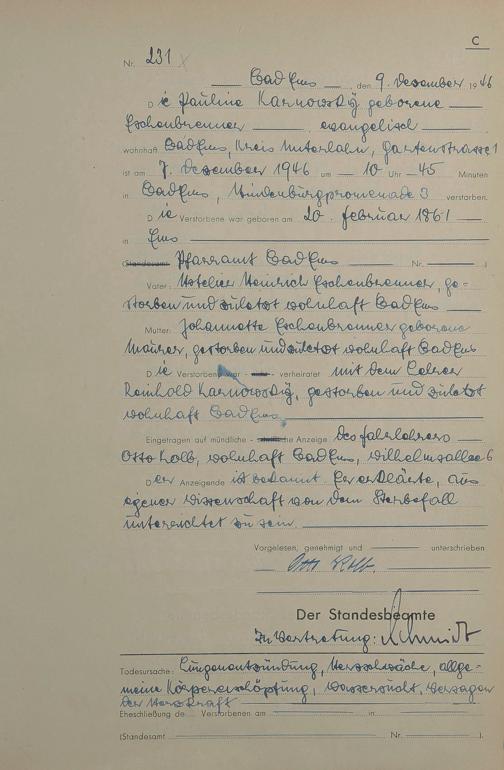 C
Nr. 231
Bad Ems, den 9. Dezember 1946
Die Pauline Karnowsky geborene
Eschenbrenner evangelisch
wohnhaft Bad Ems, Kreis Unterlahn, Gartenstrasse 1
ist am 7. Dezember 1946 um 10 Uhr 45 Minuten
in Bad Ems, Hindenburgpromenade 3 verstorben.
Die Verstorbene war geboren am 20. Februar 1861
in Ems
(Standesamt Pfarramt Bad Ems Nr. )
Vater: Hotelier Heinrich Eschenbrenner, ge-
storben und zuletzt wohnhaft Bad Ems
Mutter: Johannette Eschenbrenner geborene
Maurer, gestorben und zuletzt wohnhaft Bad Ems
Die Verstorbene war verheiratet mit dem Lehrer
Reinhold Karnowsky, gestorben und zuletzt
wohnhaft Bad Ems
Eingetragen auf mündliche Anzeige des Fahrlehrers
Otto Kolb, wohnhaft Bad Ems, Wilhelmsallee 6
Der Anzeigende ist bekannt. Er erklärte, aus
eigener Wissenschaft von dem Sterbefall
unterrichtet zu sein.
Vorgelesen, genehmigt und unterschrieben
Otto Kolb.
Der Standesbeamte
In Vertretung: Schmidt
Todesursache: Lungenentzündung, Herzschwäche, allge-
meine Körpererschöpfung, Wassersucht, Versagen
der Herzkraft
Eheschließung de Verstorbenen am in
(Standesamt Nr. ).